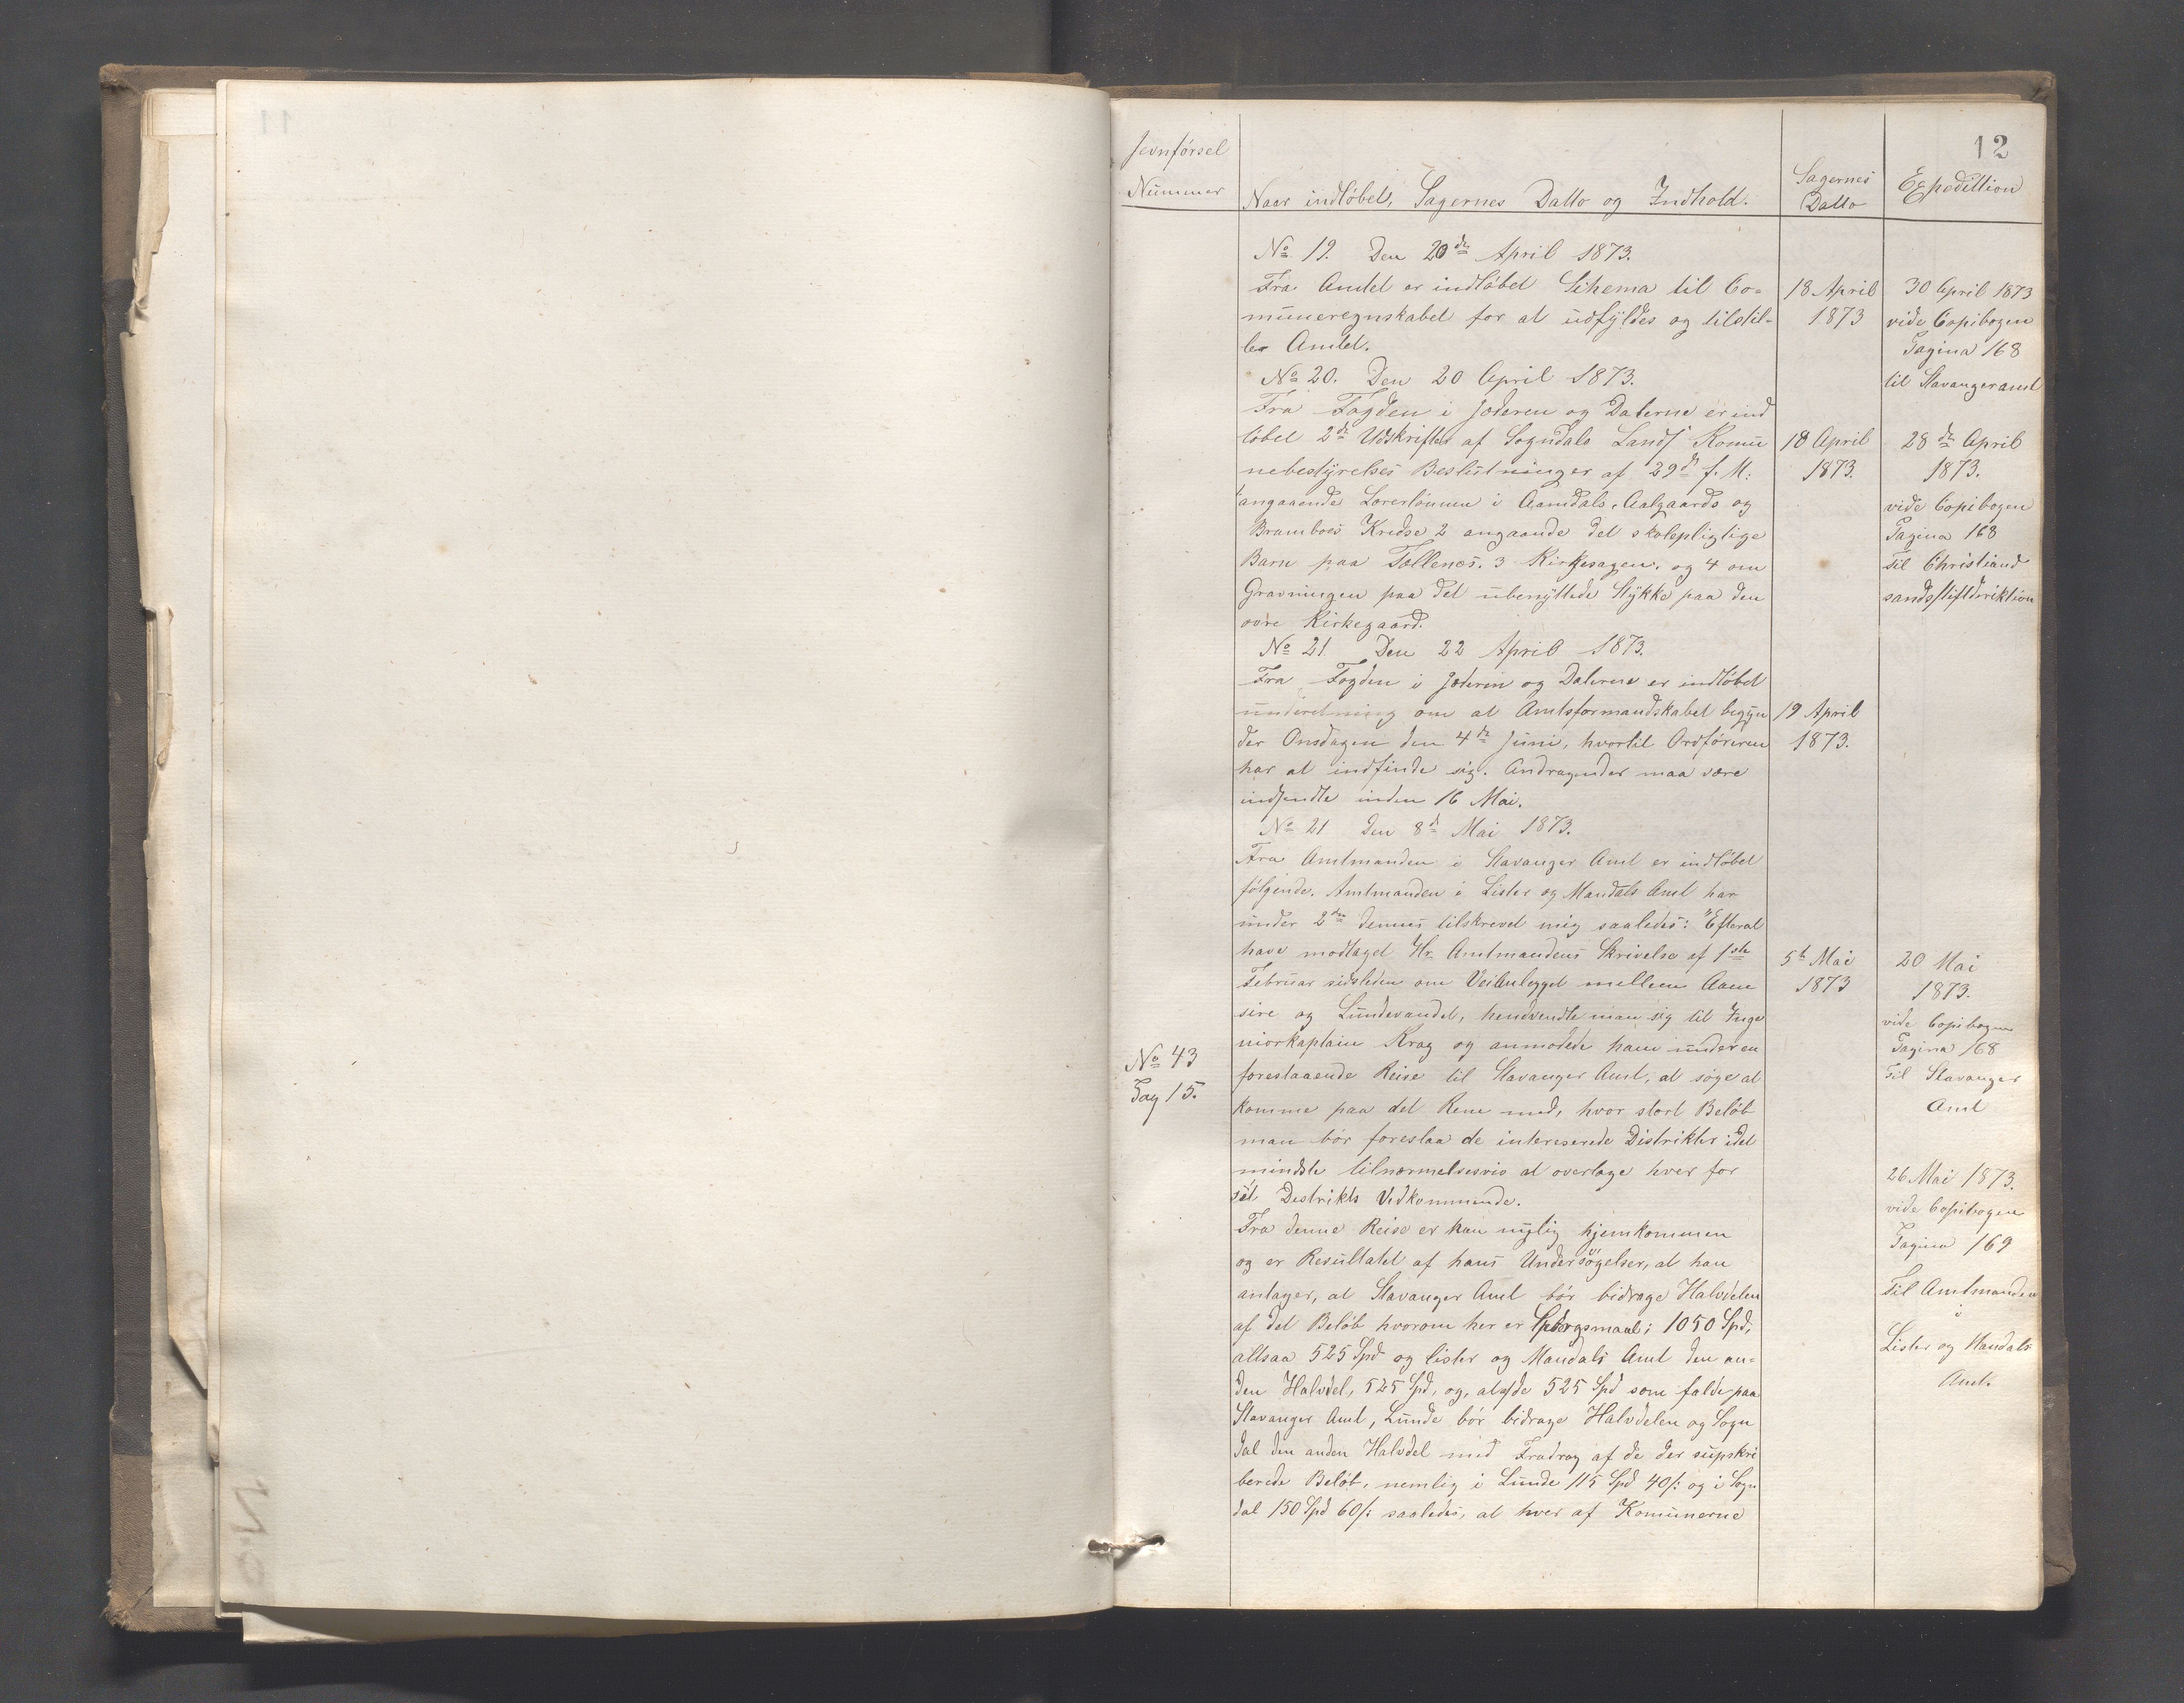 12
Jevnførsel
Nummer
Naar indløbet, Sagernes Datto og Indhold.
Sagernes
Datto
Expedittion
No 19. Den 20de April 1873.
Fra Amtet er indløbet Schema til Co-
muneregnskabet for at udfyldes og tilstil-
les Amtet.
18 April
1873
30 April 1873
vide Copibogen
Pagina 168
til Stavanger amt
No 20. Den 20 April 1873.
Fra Fogden i Jæderen og Dalerne er ind
løbet 2de Udskrifter af Sogndals Lands Komu
nebestyrelses Beslutninger af 29de f. M:
angaaende Lærerlønnen i Aamdals, Aalgaards og
Bramboes Kredse 2 angaande det skolepligtige
Barn paa Tællenes. 3 Kirkesagen. og 4 om
Gravningen paa det ubenyttede Stykke paa den
øvre Kirkegaard.
18 April
1873.
28de April
1873.
vide Copibogen
Pagina 168
Til Christiand
sandsstiftdiriktion
No 21. Den 22 April 1873.
Fra Fogden i Jæderen og Dalerne er indløbet
underetning om at Amtsformandskabet begyn
der Onsdagen den 4de Juni, hvortil Ordføreren
har at indfinde sig. Andragender maa være
indsendte inden 16 Mai.
19 April
1873.
No 21 den 8de Mai 1873.
Fra Amtmanden i Stavanger Amt er indløbet
følgende. Amtmanden i Lister og Mandals Amt har
under 2den dennes tilskrevet mig saaledes: "Efterat
have modtaget Hr Amtmandens Skrivelse af 1ste
Februar sidsleden om Veianlegget mellem Aaen
sire og Lundevandet, henvendte man sig til Inge
niørkaptain Krag og anmodede ham under en
forestaaende Reise til Stavanger Amt, at søge at
komme paa det Rene med, hvor stort Beløb
man bør foreslaa de intereserede Distrikter idet
mindste tilnærmelsesvis at overtage hver for
sit Destrikts Vedkommende.
Fra denne Reise er han nylig hjemkommen
og er Resultatet af hans Undersøgelser, at han
antager, at Stavanger Amt bør bidrage Halvdelen
af det Beløb hvorom her er Spørgsmaal; 1050 Spd,
altsaa 525 Spd og Lister og Mandals Amt den an-
den Halvdel, 525 Spd, og, at af de 525 Spd som falde paa
Stavanger Amt, Lunde bør bidrage Halvdelen og Sogn
dal den anden Halvdel med Fradrag af de der supskri
berede Beløb, nemlig i Lunde 115 Spd 40/: og i Sogn
dal 150 Spd 60/: saaledes, at hver af Komunerne
No 43
Pag 15.
5te Mai
1873
20 Mai
1873.
vide Copibogen
Pagina 168
Til Stavanger
Amt
26 Mai 1873.
vide Copibogen
Pagina 169
Til Amtmanden
i
Lister og Mandals
Amt.